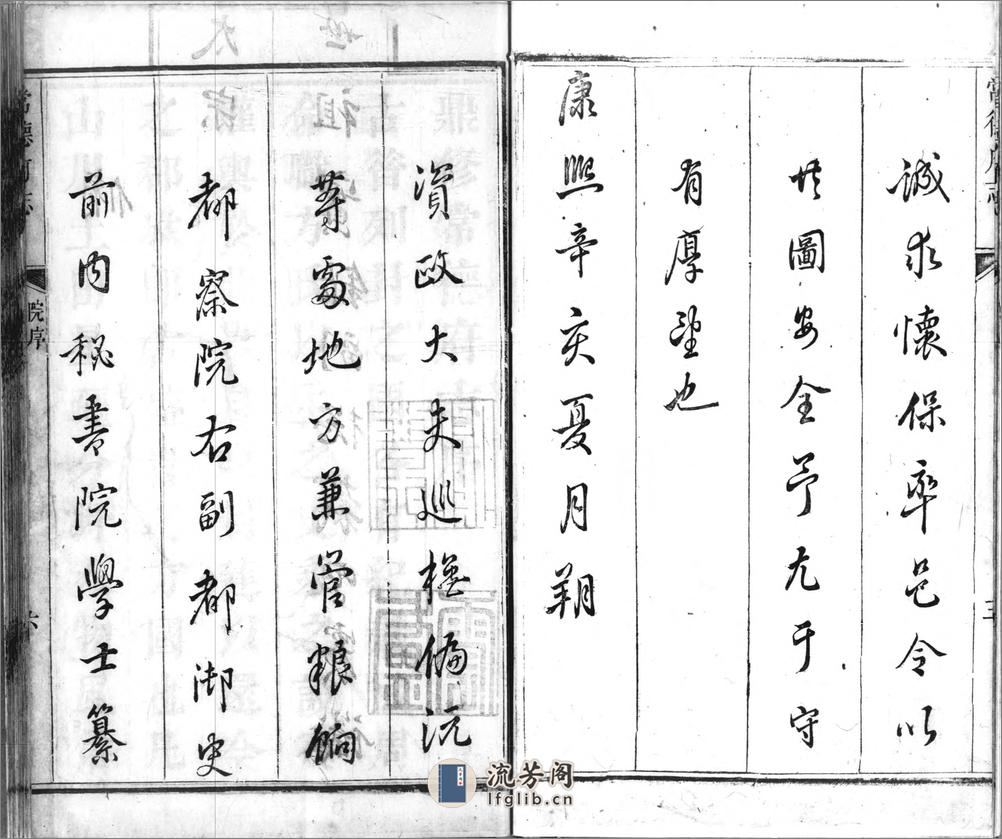 誠求懷保率邑令以
共圖安全予尤于守
有厚望也
康熙辛亥夏月朔
資政大夫巡撫偏沅
等處地方兼管糧餉
都察院右副都御史
前內秘書院學士纂
常德府志
院序
六
常德府志
三
流芳阁
lfglib.cn